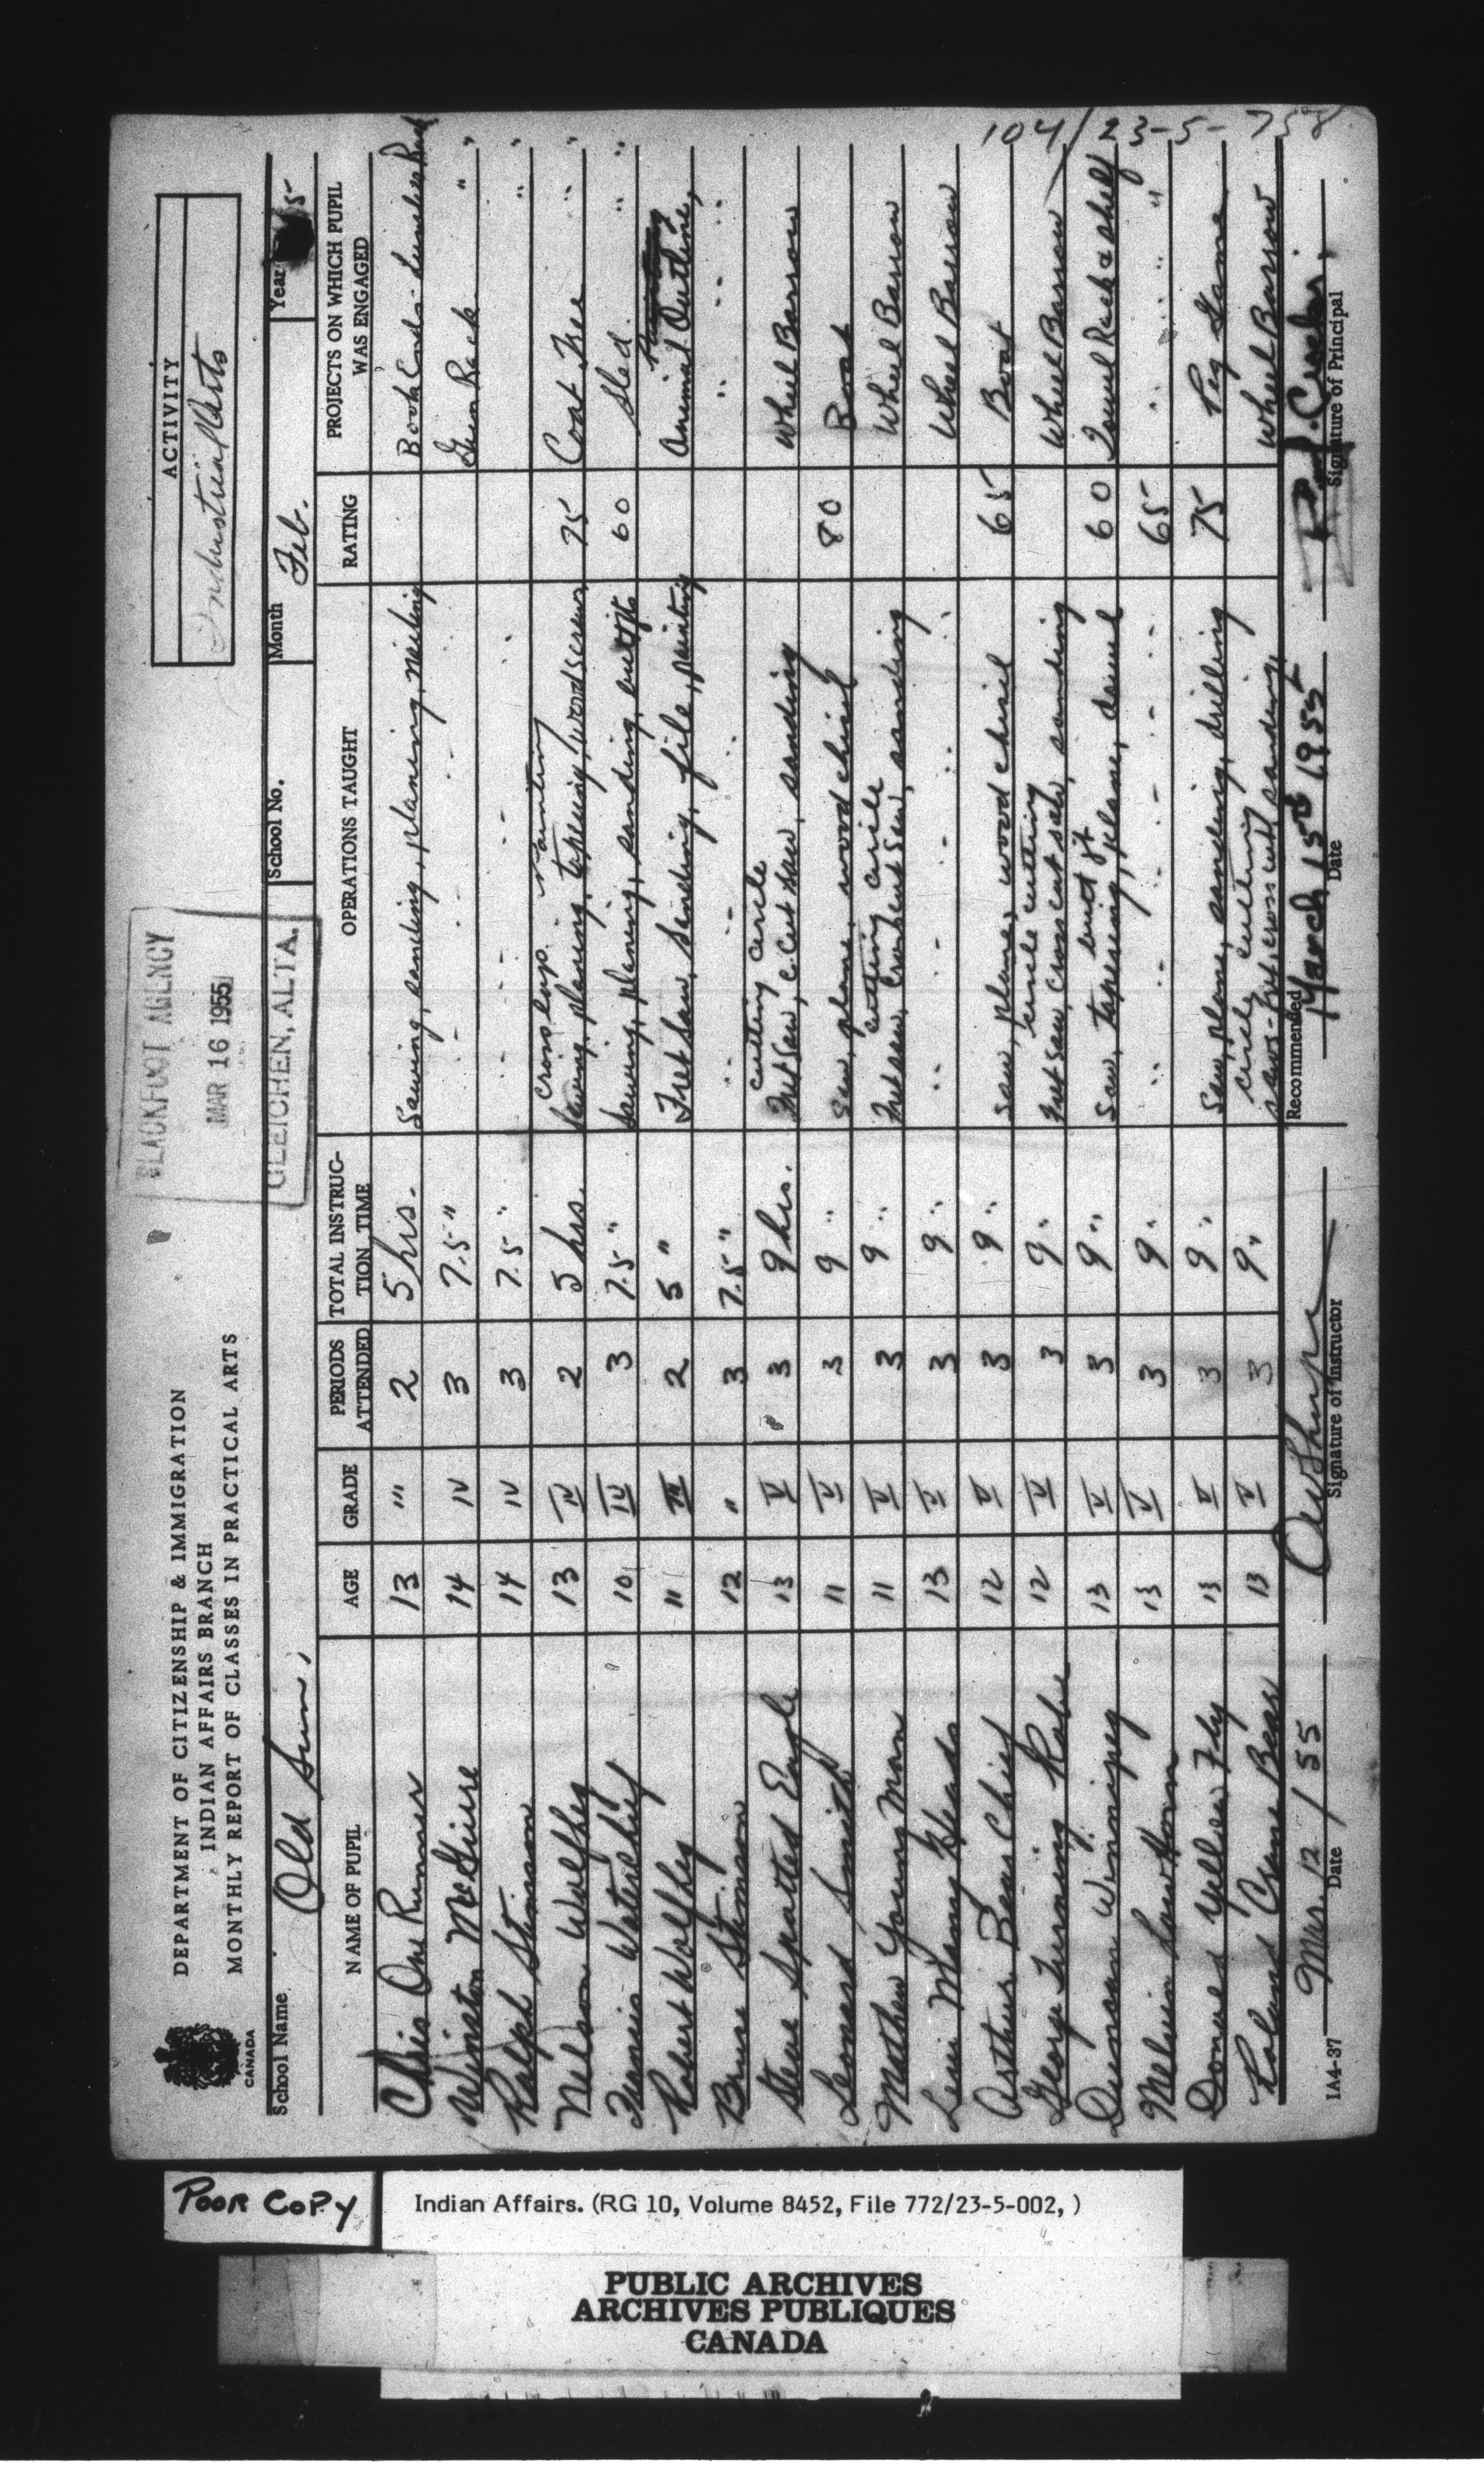 DEPARTMENT OF CITIZENSHIP & IMMIGRATION
INDIAN AFFAIRS BRANCH
MONTHLY REPORT OF CLASSES IN PRACTICAL ARTS
CANADA
BLACKFOOT AGENCY
MAR 16 1955
GLEICHEN, ALTA.
ACTIVITY
Industrial Arts
School Name Old Sun School No. Month Feb. Year 5
NAME OF PUPIL AGE GRADE PERIODS ATTENDED TOTAL INSTRUCTION TIME OPERATIONS TAUGHT RATING PROJECTS ON WHICH PUPIL WAS ENGAGED
Chris One Runner 13 III 2 5 hrs. Sawing, sanding, planing, nailing Book Ends
Winston McGuire 14 IV 3 7.5 " " " " Gun Rack " "
Ralph Stimson 14 IV 3 7.5 " " " " " " "
cross lap. Painting
Nelson Wolfleg 13 IV 2 5 hrs. Sawing, planing, tapering, wood screws 75 Coat Tree " "
Francis Waterchief 10 IV 3 7.5 " Sawing, planing, sanding, 60 Sled " "
Robert Wolfleg 11 III 2 5 " Fret saw, sanding, file, painting Animal Outline,
Bruce Stimson 12 " 3 7.5 " " " " " " "
cutting circle
Steve Spotted Eagle 13 V 3 9 hrs. Fret Saw, C. Cut saw, sanding Wheel Barrow
Leonard Smith 11 V 3 9 " Saw, plane, wood chisel 80 Boat
cutting circle
Mathew Young Man 11 V 3 9 " Fret saw, Crosscut Saw, sanding Wheel Barrow
Levi Many Heads 13 V 3 9 " " " " " Wheel Barrow
Arthur Bear Chief 12 V 3 9 " Saw, plane, wood chisel 65 Boat
circle cutting
George Turning Robe 12 V 3 9 " Fret saw, cross cut saw, sanding Wheel Barrow
butt jt
Duncan Winnipeg 13 V 3 9 " Saw, tapering, plane, dowel 60 Towel Rack & shelf
Melvin Low Horn 13 V 3 9 " " " " " 65 " " " "
Donald Yellow Fly 13 V 3 9 " Saw, plane, sanding, drilling 75 Peg Game
circle cutting
Roland Crane Bear 13 V 3 9 " saws-fret, cross cut, sanding, Wheel Barrow
104/23-5-758
Mar. 12/55
Recommended March 15th 1955
IA4-37 Date Signature of Instructor Date Signature of Principal
POOR COPY
Indian Affairs. (RG 10, Volume 8452, File 772/23-5-002, )
PUBLIC ARCHIVES
ARCHIVES PUBLIQUES
CANADA